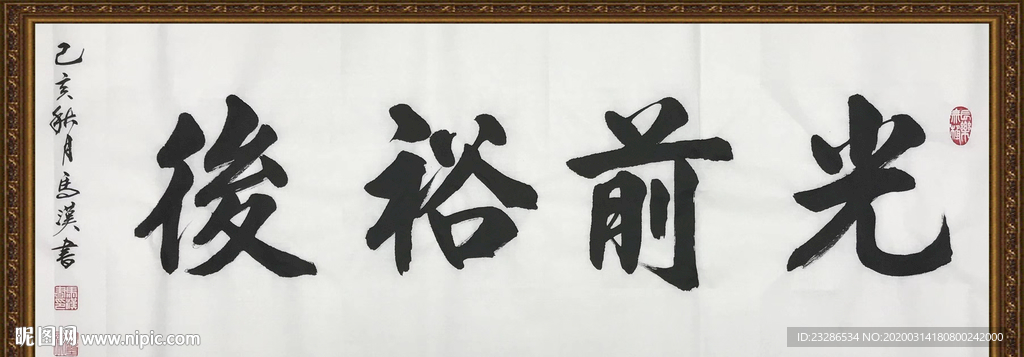 光前裕後
己亥秋月馬漢書
昵图网 www.nipic.com
ID:23286534 NO:20200314180800242000